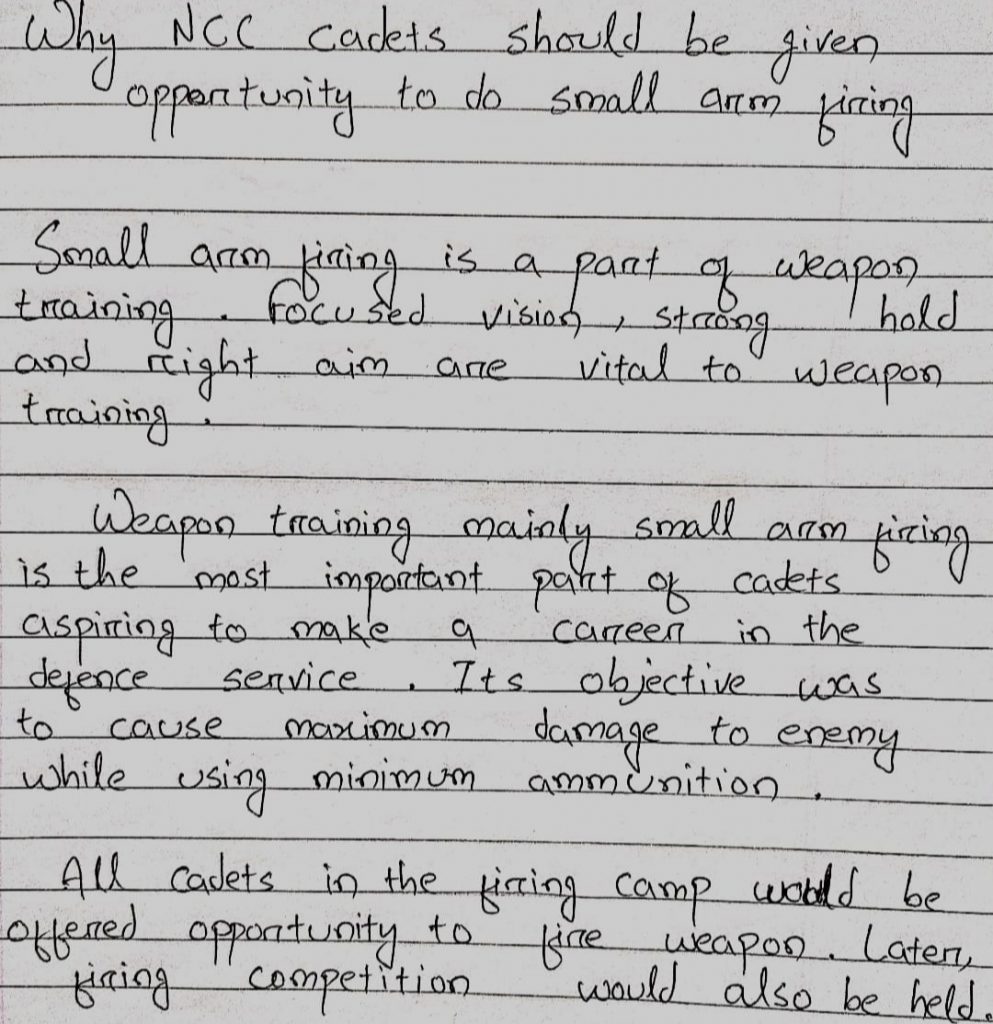 Why NCC cadets should be given
opportunity to do small arm firing
Small arm firing is a part of weapon
training. Focused vision, strong hold
and right aim are vital to weapon
training.
Weapon training mainly small arm firing
is the most important part of cadets
aspiring to make a career in the
defence service. Its objective was
to cause maximum damage to enemy
while using minimum ammunition.
All cadets in the firing camp would be
offered opportunity to fire weapon. Later,
firing competition would also be held.